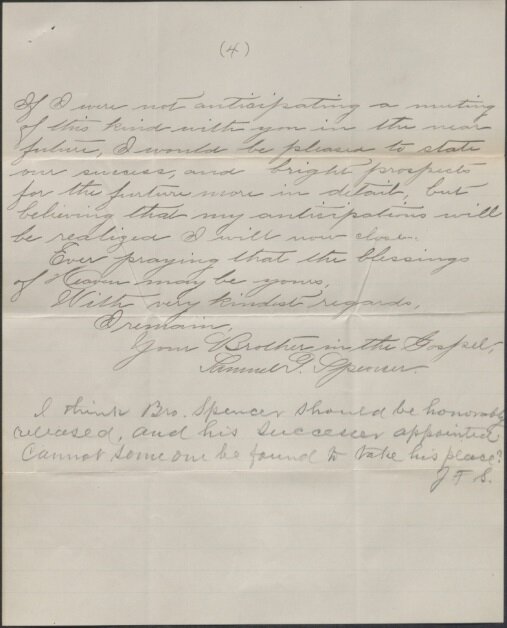 (4)
If I were not anticipating a meeting
of this kind with you in the near
future, I would be pleased to state
our success, and bright prospects
for the future more in detail, but
believing that my anticipations will
be realized I will now close.
Ever praying that the blessings
of Heaven may be yours,
With very kindest regards,
I remain,
Your Brother in the Gospel,
Samuel G. Spencer.
I think Bro. Spencer should be honorably
released, and his successor appointed
Cannot some one be found to take his place?
J F S.